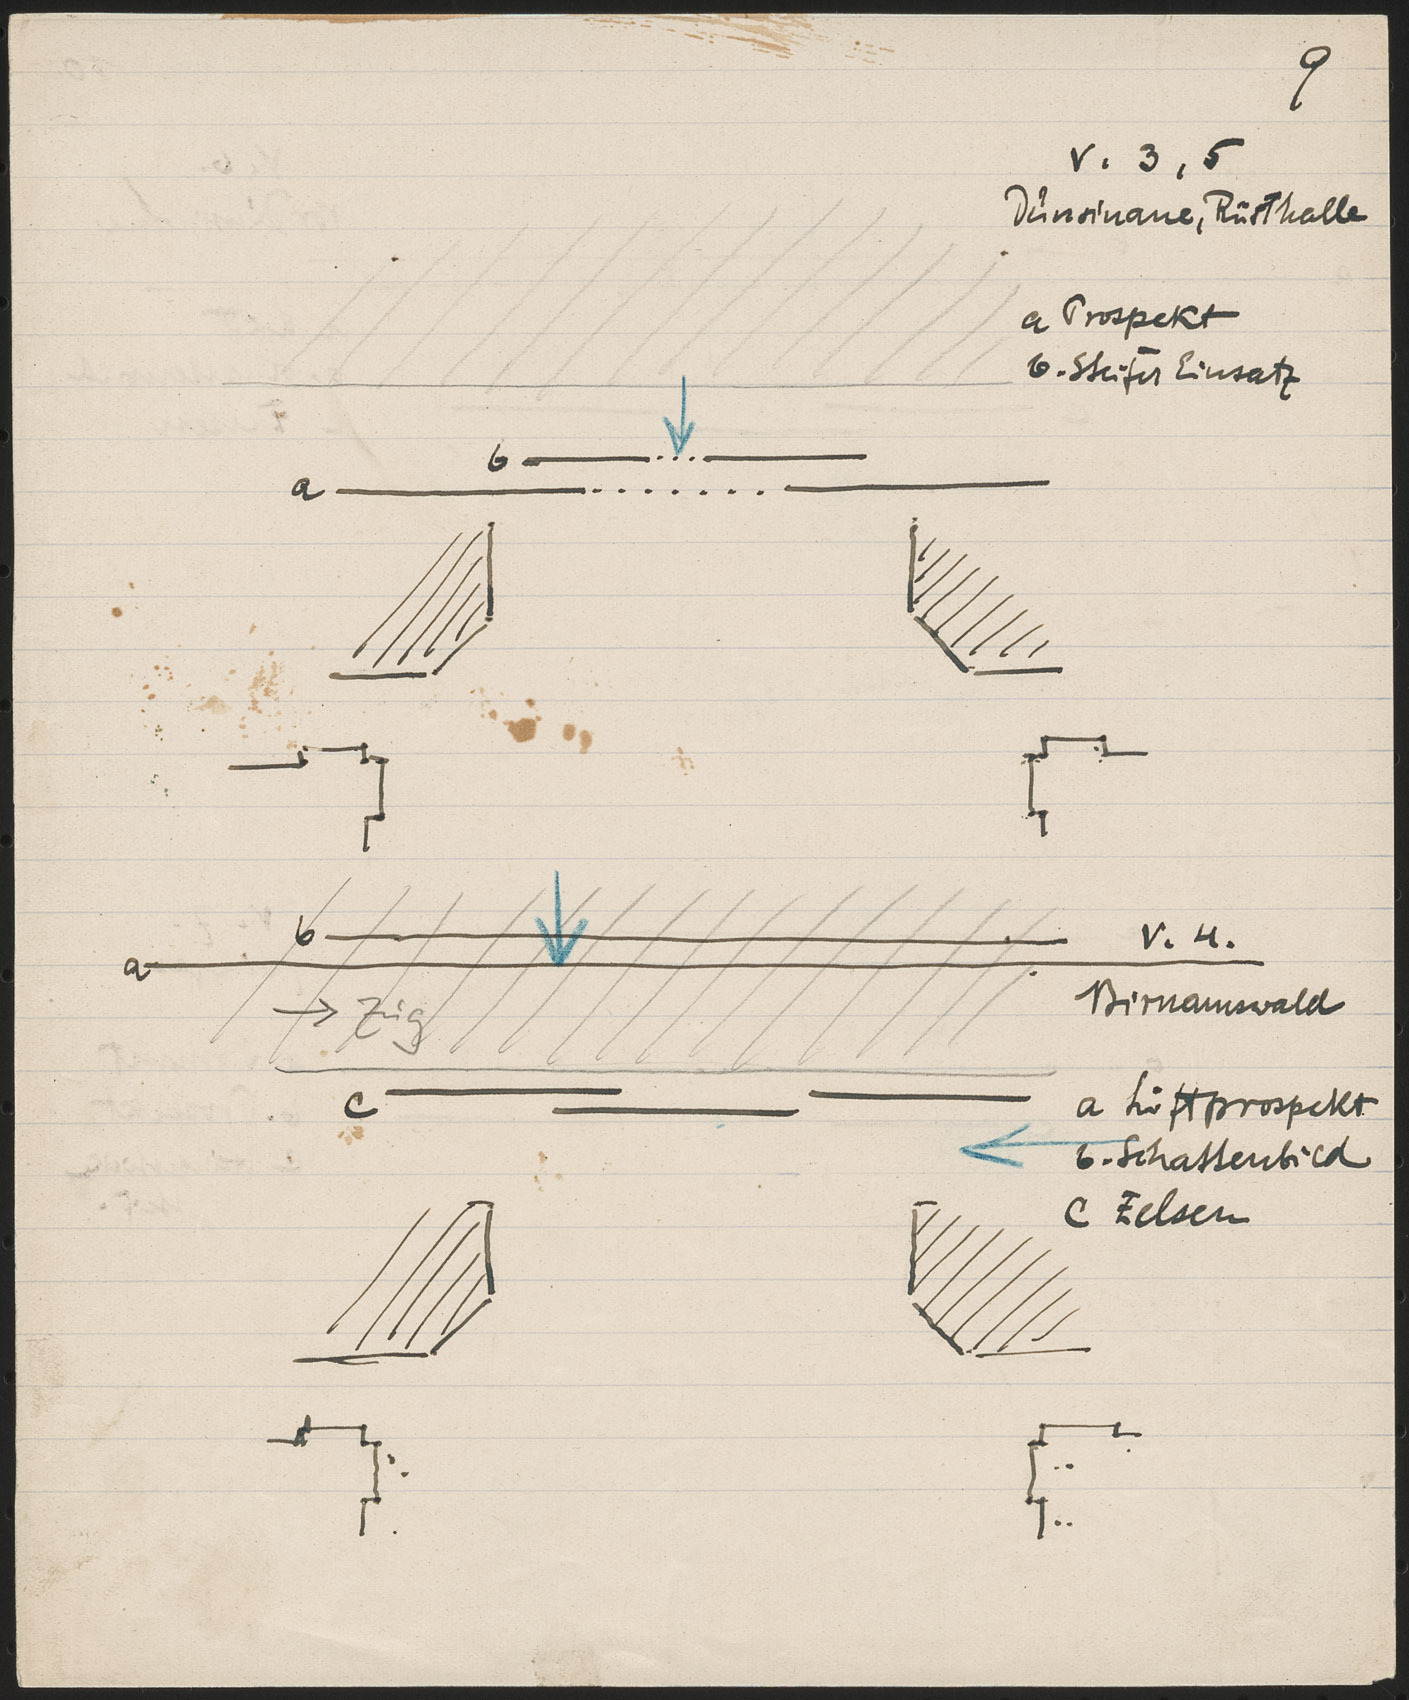 9
V. 3, 5
Dunsinane, Rüsthalle
a Prospekt
b. Steifer Einsatz
b
a
b
a
V. 4.
→ Zug
Birnamswald
c
a Luftprospekt
b. Schattenbild
C Felsen